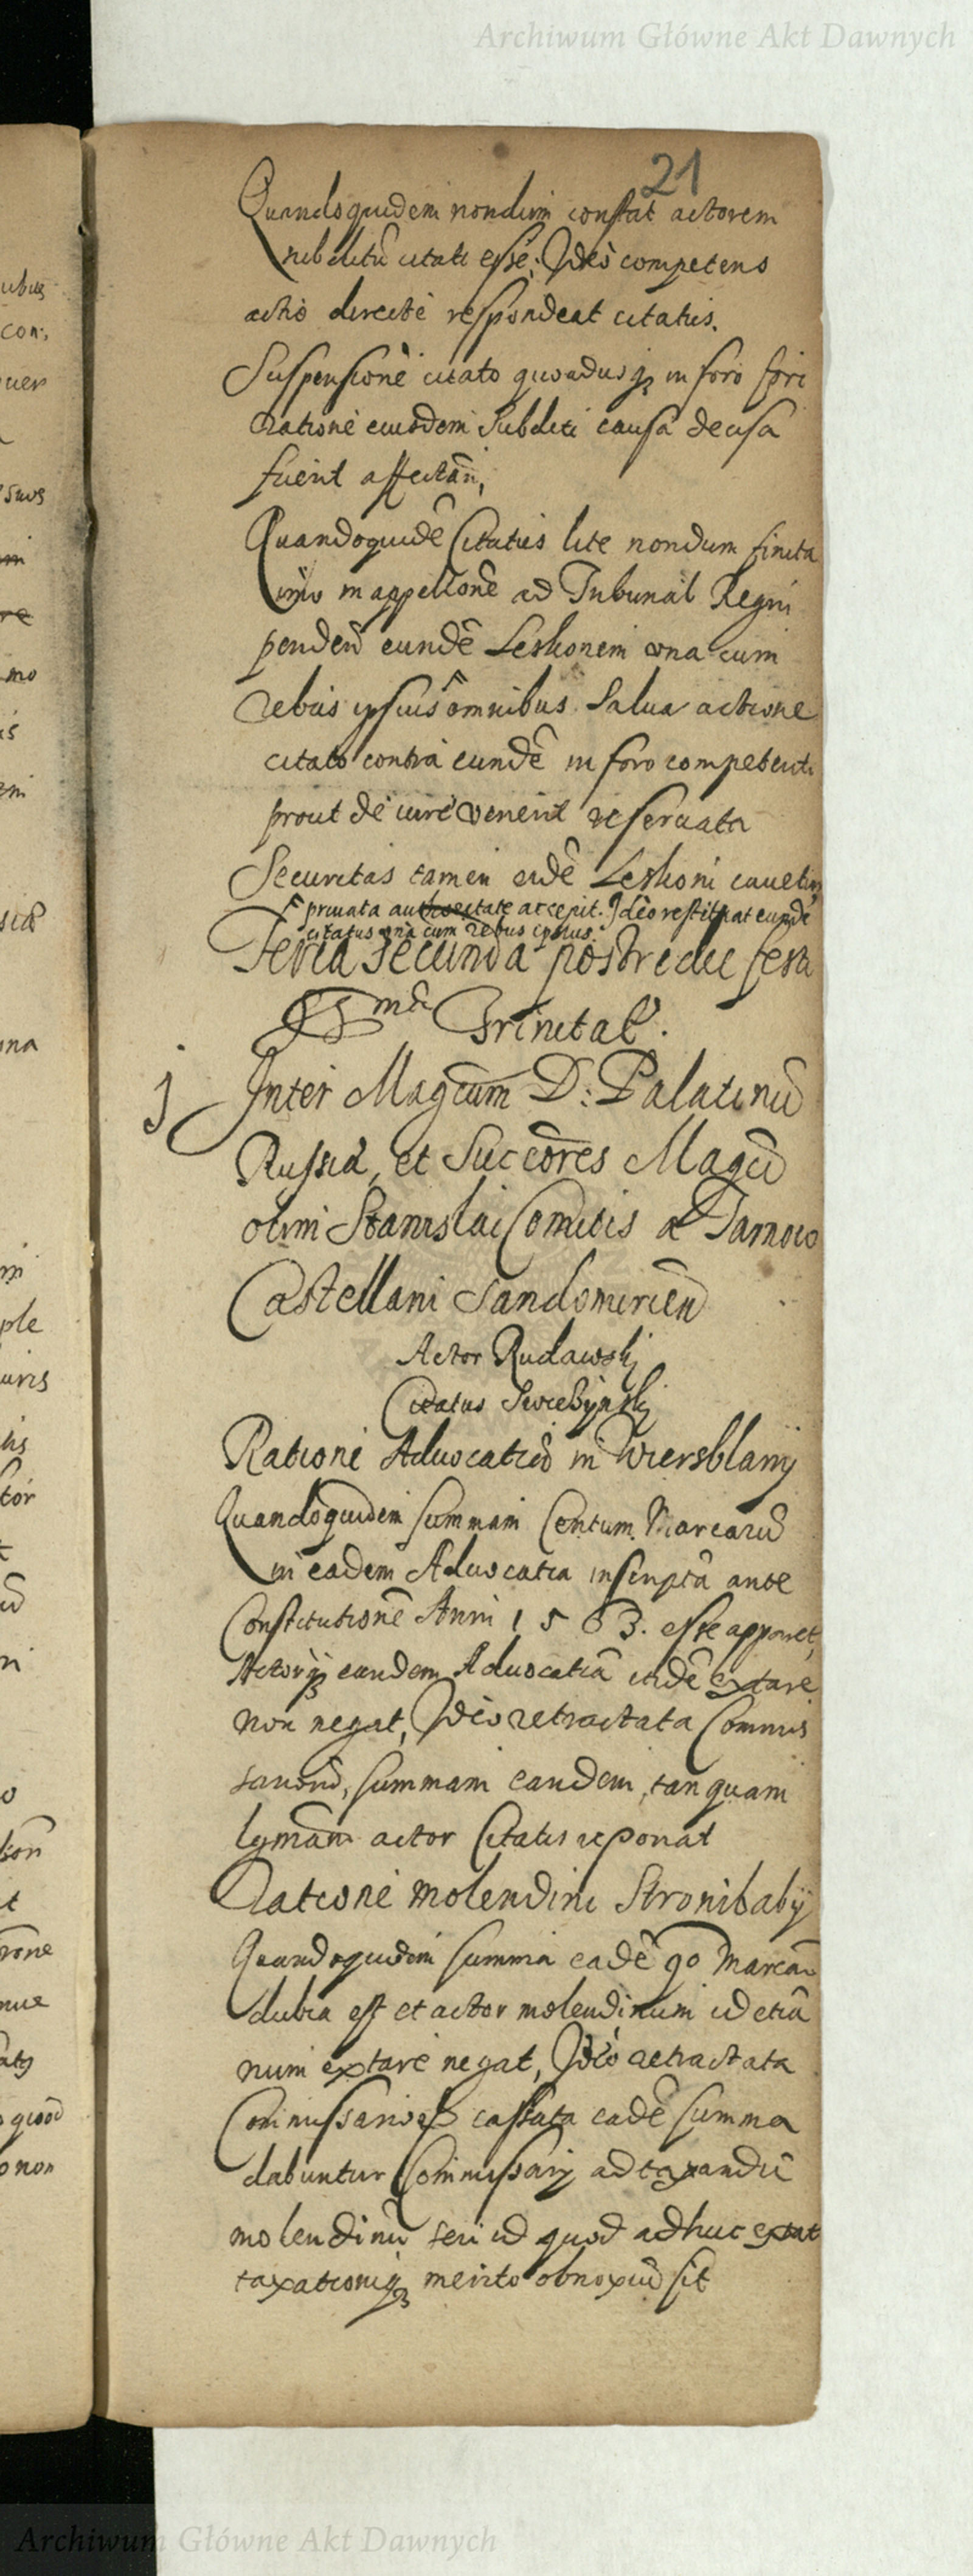 Archiwum Główne Akt Dawnych
21
Quandoquidem nondum constat actorem
subditũ citati esse, Ideo competens
actio directe respondeat citatus.
Suspensionẽ citato quousq in foro fori
Ratione eiusdem Subditi causa decisa
fuerit affectan̄,
Quandoquidẽ Citatus lite nondum finita
imo in appellõne ad Tribunal Regni
penden̄ eundẽ Leskonem vna cum
Rebus ipsius omnibus Salua actione
citato contra eundẽ in foro competenti
prout de iure venerit reseruata
Securitas tamen eidẽ Leskoni cauetur
priuata authoritate accepit. Ideo restituat eundẽ
citatus vna cum Rebus ipsius.
Feria Secunda postridie festi
SSmæ Trinitat.
1 Inter Magcum D: Palatinũ
Russiæ, et Succõres Magci
olim Stanislai Comitis a Tarnow
Castellani Sandomirien̄
Actor Rudawskj
Citatus
Ratione Aduocatiæ in Wiersblanÿ
Quandoquidem summam Centum Marcarũ
in eadem Aduocatia inscriptã ante
Constitutionẽ Anni 1563. esse apparet,
Actorq eandem Aduocatiã extare
non negat, Ideo retractata Commis
sariorũ, summam eandem, tanquam
actor Citatis reponat
Ratione molendini Stronibabÿ
Quandoquidem summa eadẽ 90 Marcarũ
dubia est et actor molendinum id etiã
num extare negat, Ideo retractata
cassata eadẽ summa
dabuntur Commissarij ad taxandũ
molendinũ seu id quod adhuc extat
taxationiq merito obnoxiũ sit
ubus
con:,
uer
suos
mo
ple
uris
tor
rone
nue
quod
o non
Archiwum Główne Akt Dawnych